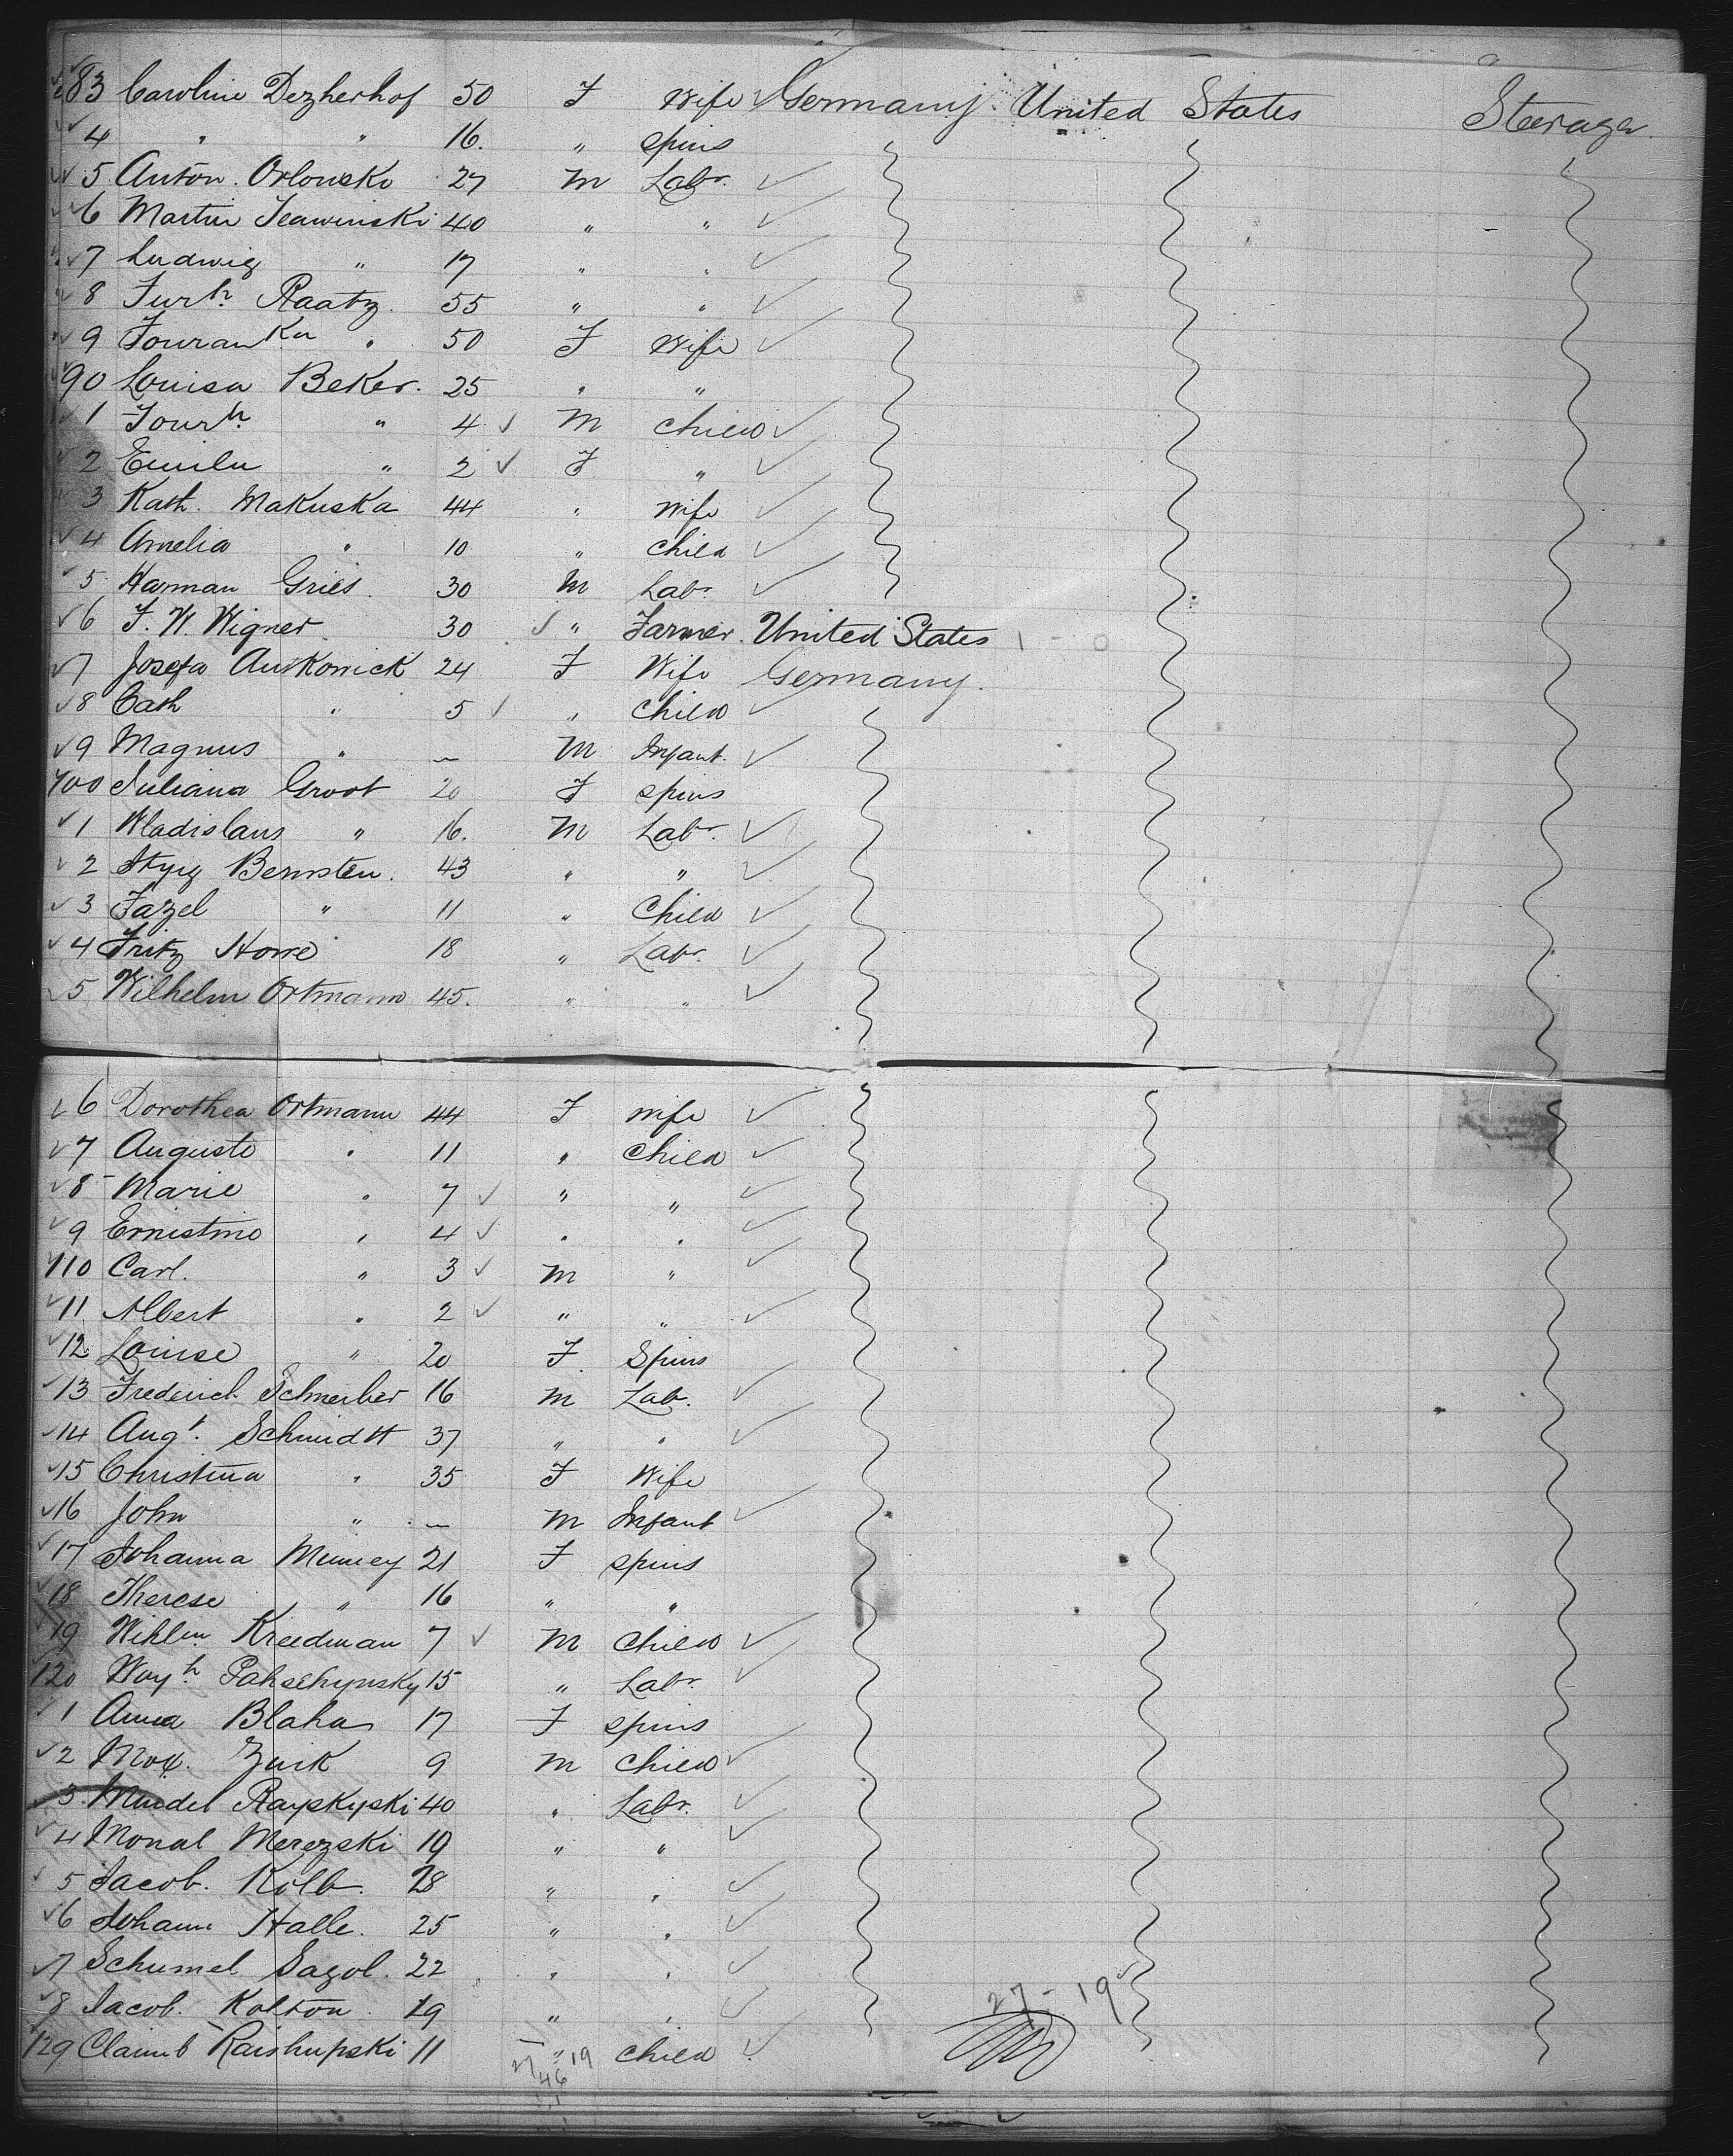 83 Caroline Dezherhof 50 F Wife Germany United States Steerage.
4 " " 16. " Spins
5 Anton Orlowski 27 M Labr.
6 Martin 40 " "
7 Ludwig " 17 " "
8 Raatz 55 " "
9 " 50 F Wife
90 Louisa Beker. 25 " "
1 " 4 M Child
2 " 2 F "
3 Kath. Makuska 44 " Wife
4 Amelia " 10 " Child
5 Harman Gries. 30 M Labr.
6 F. W. Wigner 30 " Farmer. United States 1 - 0
7 Josefa 24 F Wife Germany.
8 Cath " 5 " Child
9 Magnus " — M Infant.
100 Juliana Groot 20 F Spins
1 Wladislaus " 16. M Labr.
2 43 " "
3 " 11 " Child
4 Fritz Howe 18 " Labr.
5 Wilhelm Ortmann 45. " "
6 Dorothea Ortmann 44 F Wife
7 Auguste " 11 " Child
8 Marie " 7 " "
9 Ernistine " 4 " "
110 Carl. " 3 M "
11 Albert " 2 " "
12 Louise " 20 F Spins
13 Frederich 16 M Lab.
14 Augt. Schmidtt 37 " "
15 Christina " 35 F Wife
16 John " — M Infant
17 Johanna 21 F Spins
18 Therese " 16 " "
19 Wihlm. Kreedman 7 M Child
120 15 " Labr.
1 Anna Blaha 17 F Spins
2 Max. 9 M Child
3 Mendel 40 " Labr.
4 Monal Merezski 19 " "
5 Jacob. Kolb. 28 " "
6 Johann Halle. 25 " "
7 Schumel Sagol. 22 " "
8 Jacob. Kolton. 19 " " 27 - 19
129 11 " Child
27 19
46